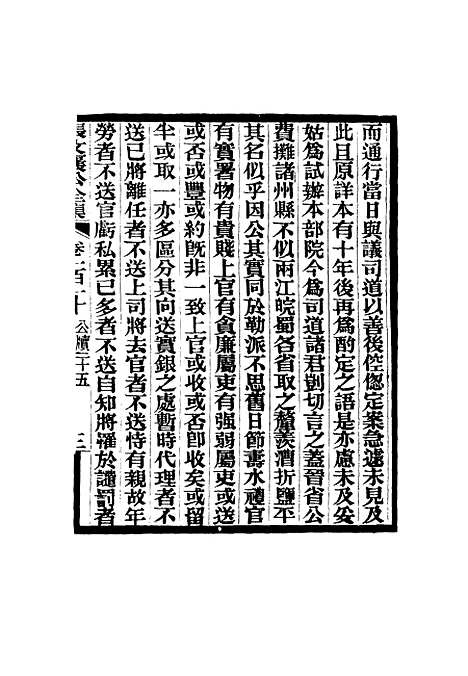 而通行當日與議司道以善後倥傯定案急遽未見及
此且原詳本有十年後再爲酌定之語是亦慮未及妥
姑爲試辦本部院今爲司道諸君剴切言之蓋晉省公
費攤諸州縣不似兩江皖蜀各省取之釐羨漕折鹽平
其名似乎因公其實同於勒派不思舊日節壽水禮官
有實署物有貴賤上官有貪廉屬吏有强弱屬吏或送
或否或豐或約旣非一致上官或收或否卽收矣或留
半或取一亦多區分其向送實銀之處暫時代理者不
送已將離任者不送上司將去官者不送恃有親故年
勞者不送官虧私累已多者不送自知將罹於譴罰者
張文襄公全集 卷一百二十 公牘三十五 三